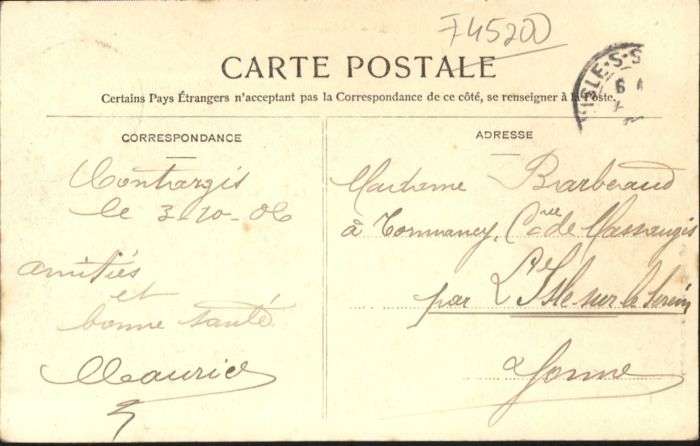 F45200
CARTE POSTALE
Certains Pays Étrangers n'acceptent pas la Correspondance de ce côté, se renseigner à la Poste.
CORRESPONDANCE
ADRESSE
Montargis
le 3-10-06
amitiés
et
bonne santé
Maurice
Madame Barbeaud
à Tormancy, Cne de Massangis
par L'Isle-sur-le Serein
Yonne
L'ISLE-S-S
6